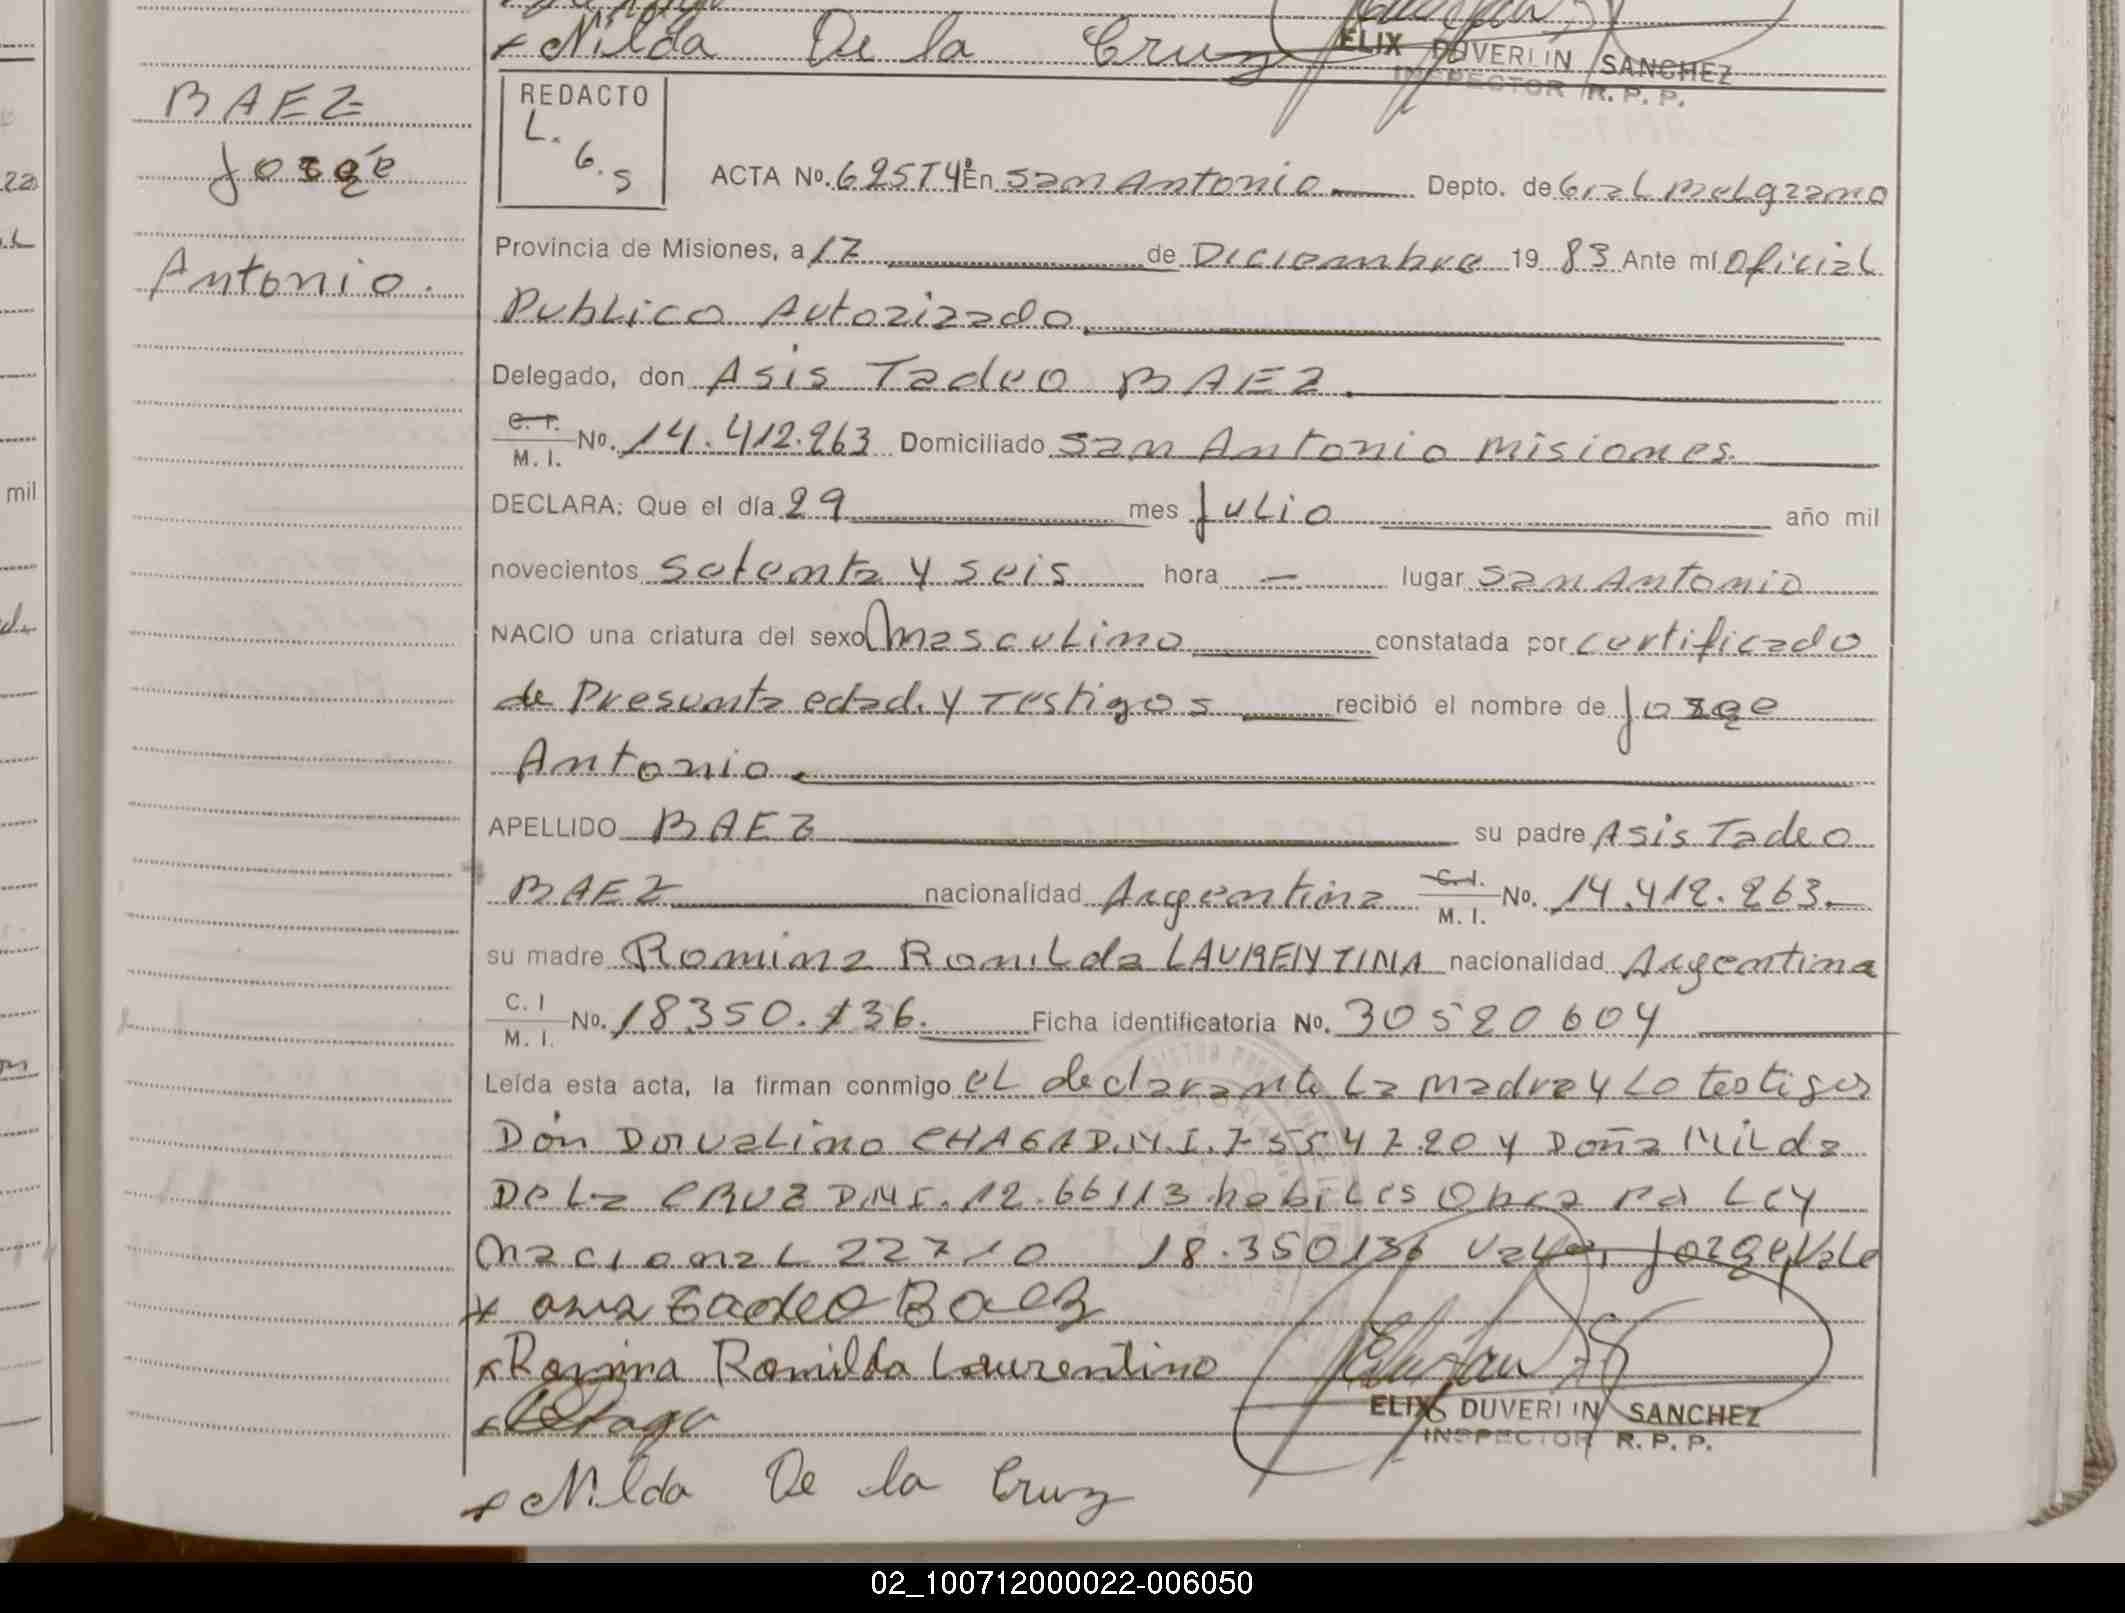 Nilda De la Cruz
ELIX DUVERLIN SANCHEZ
INSPECTOR R. P. P.
BAEZ
Jorge
Antonio.
REDACTO
L. G. S
ACTA No. 625T4º En San Antonio Depto. de Gral Belgrano
Provincia de Misiones, a 17 de Diciembre 19 83 Ante mí Oficial
Publico Autorizado
Delegado, don Asis Tadeo BAEZ.
C. I. M. I. No. 14.412.263 Domiciliado San Antonio Misiones.
DECLARA: Que el día 29 mes Julio año mil
novecientos setenta y seis hora — lugar San Antonio
NACIO una criatura del sexo Masculino constatada por certificado
de Presunta edad y Testigos recibió el nombre de Jorge
Antonio.
APELLIDO BAEZ su padre Asis Tadeo
BAEZ nacionalidad Argentina C. I. M. I. No. 14.412.263.
su madre Romina Romilda LAURENTINA nacionalidad Argentina
C. I M. I. No. 18350.136. Ficha identificatoria No. 30520604
Leída esta acta, la firman conmigo el declarante La Madre y Lo testigos
Don Dorvalino CHAGA D.N.I. 7554720 y Doña Nilda
De La CRUZ DNI. 12.66113 habiles Ley
Nacional 22710 18.350136 Vale, Jorge, Vale
x Tadeo Baez
x Romina Romilda Laurentino
x Chaga
ELIX DUVERLIN SANCHEZ
INSPECTOR R. P. P.
x Nilda De la Cruz
mil
02_100712000022-006050